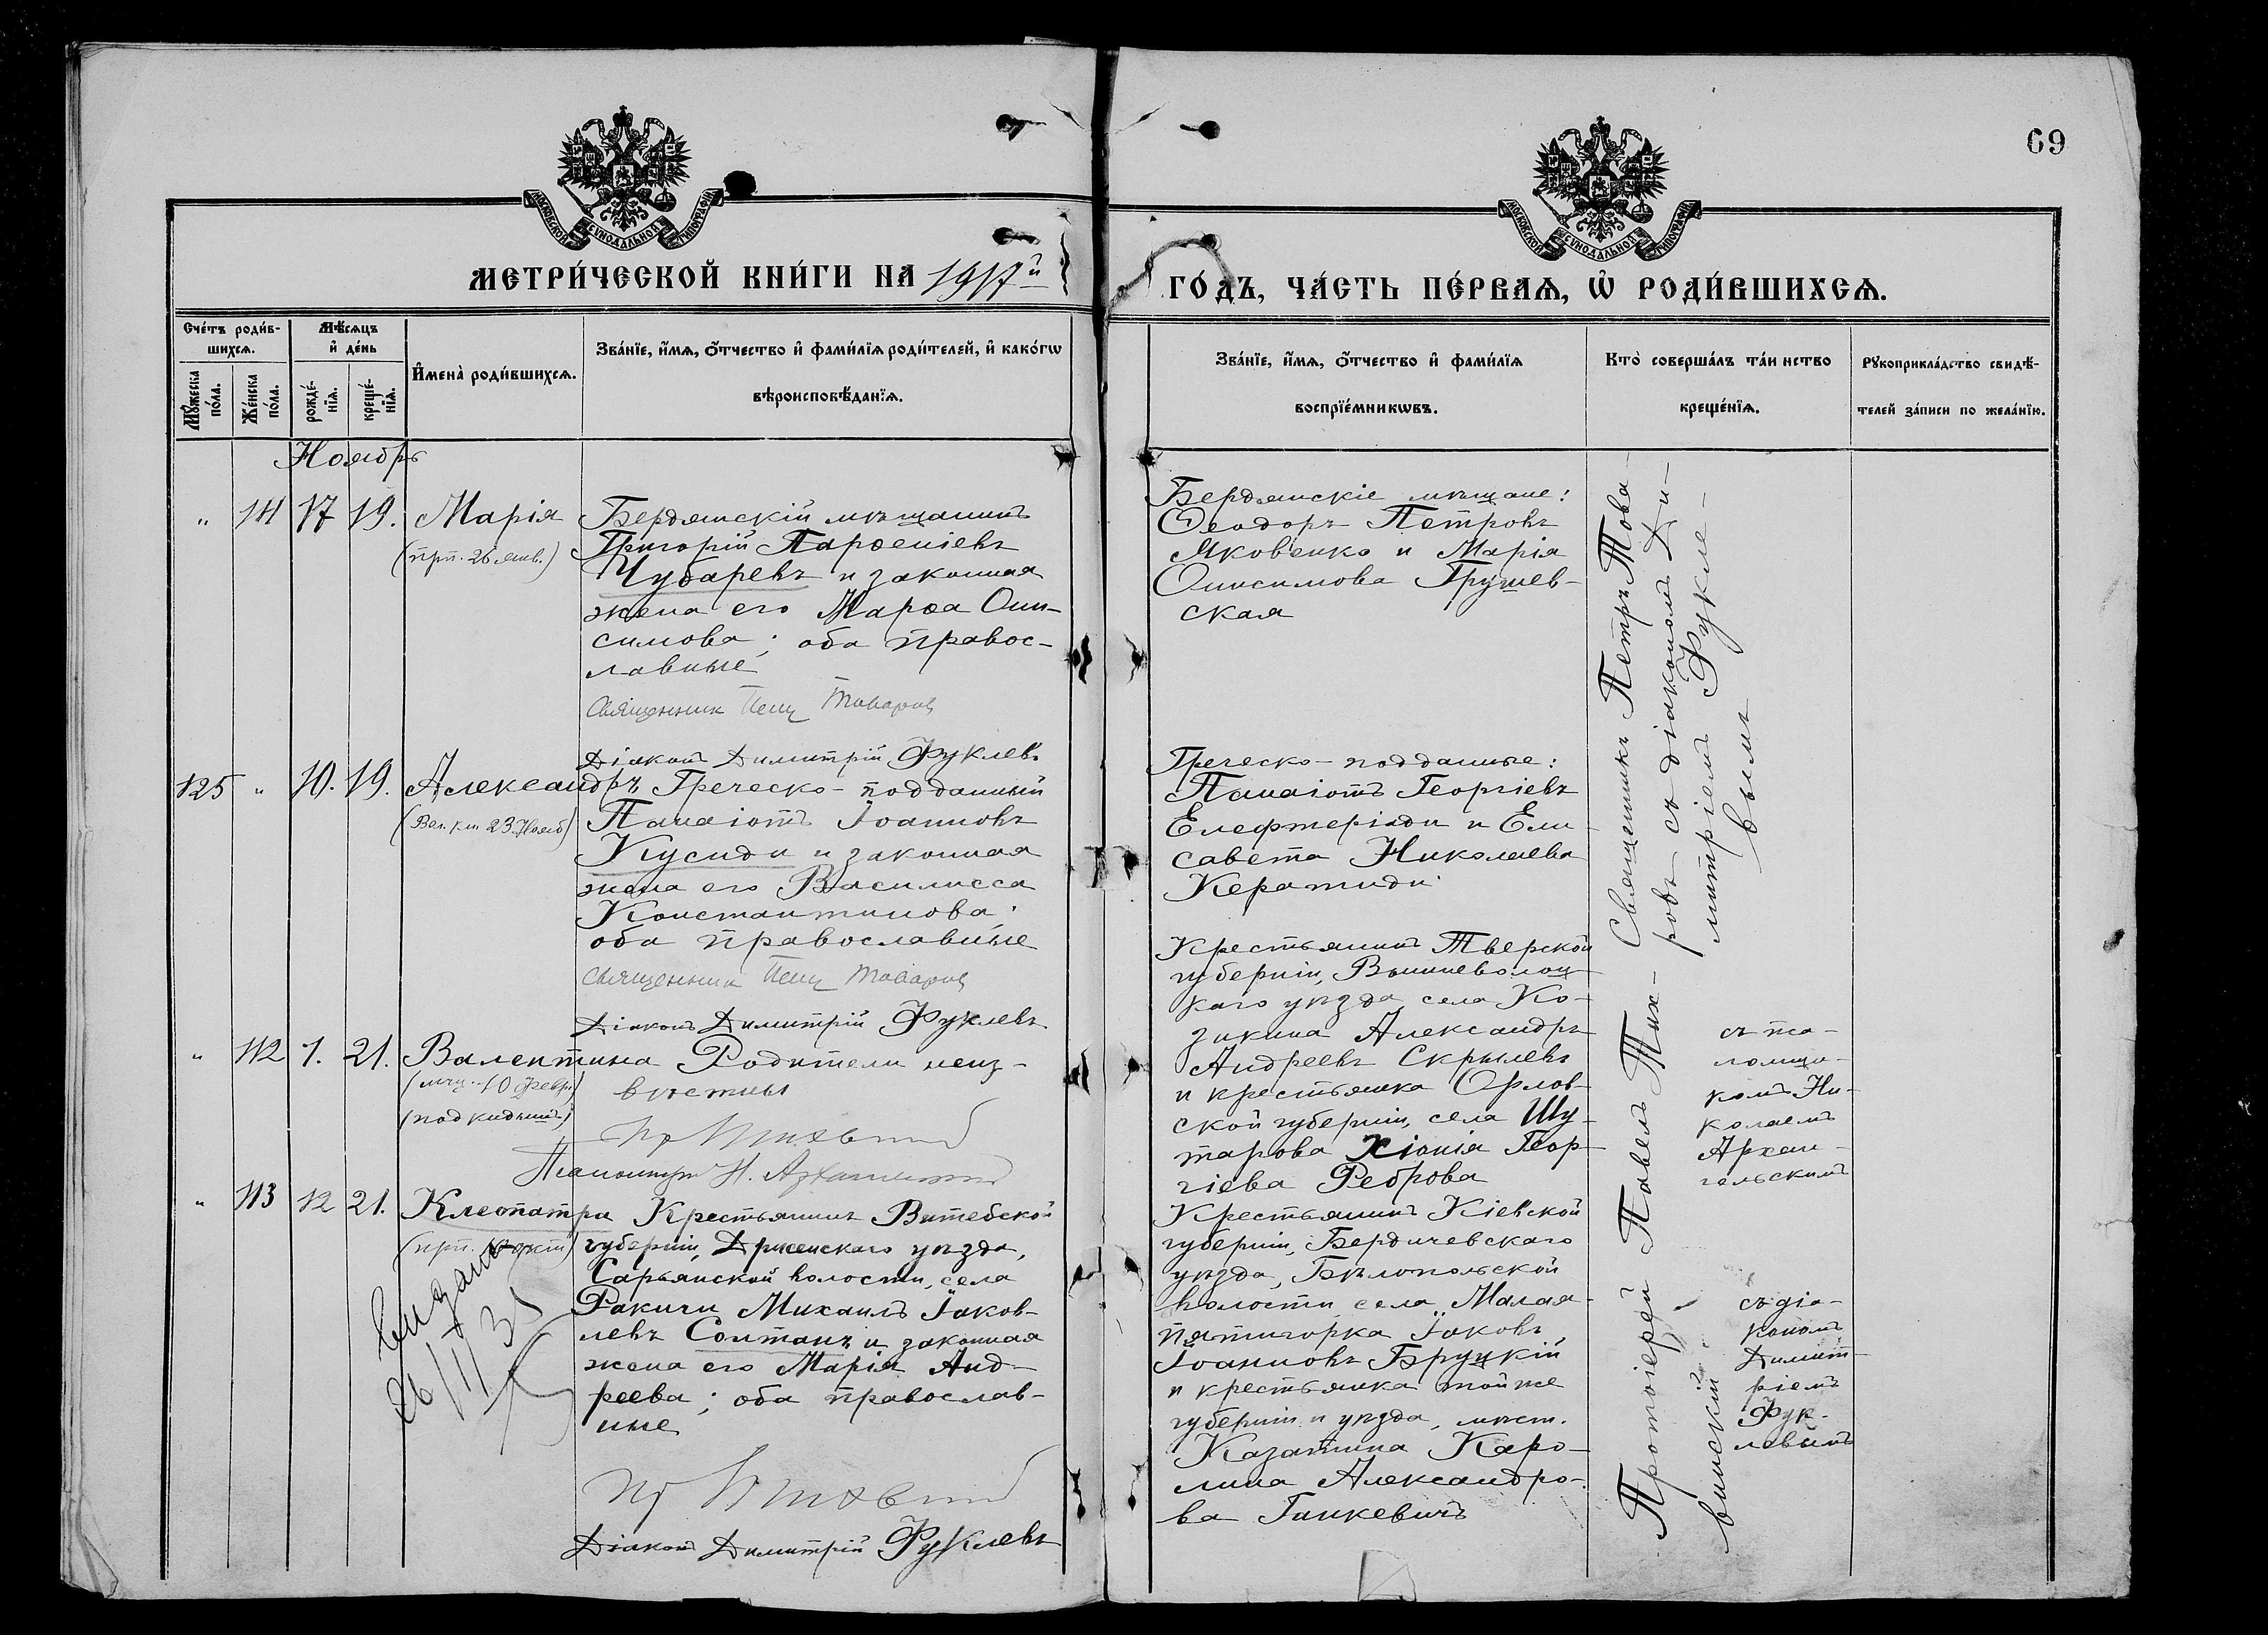 69
МОСКОВСКОЙ СѴНОДАЛЬНОЙ ТИПОГРАФІИ
МОСКОВСКОЙ СѴНОДАЛЬНОЙ ТИПОГРАФІИ
МЕТРИ́ЧЕСКОЙ КНИ́ГИ НА 1917й
ГО́ДЪ, ЧА́СТЬ ПЕ́РВАѦ, Ѽ РОДИ́ВШИХСѦ.
Сче́тъ роди́в-
шихсѧ.
Мꙋ́жеска по́ла.
Же́нска по́ла.
Мѣ́сѧцъ
и҆ де́нь
рожде́-
нїѧ.
креще́-
нїѧ.
И҆мена̀ роди́вшихсѧ.
Зва́нїе, и҆́мѧ, ѻ҆́тчество и҆ фами́лїѧ роди́телей, и҆ како́гѡ
вѣроисповѣ́данїѧ.
Зва́нїе, и҆́мѧ, ѻ҆́тчество и҆ фами́лїѧ
воспрїе́мникѡвъ.
Кто̀ соверша́лъ та́инство
креще́нїѧ.
Рꙋкоприкла́дство свидѣ́-
телей за́писи по жела́нїю.
Ноябрь
" 111 17 19. Марія
(прп. 26 янв.)
Бердянскій мѣщанинъ
Григорій Парѳеніевъ
Чубаревъ и законная
жена его Марѳа Они-
симова; оба правос-
лавные
Священник Петр Товаров
Діаконъ Димитрій Фуклевъ
Бердянскіе мѣщане:
Ѳеодоръ Петровъ
Яковенко и Марія
Онисимова Грушев-
ская
Священникъ Петръ Това-
ровъ съ діакономъ Ди-
митріемъ Фукле-
вымъ
125 " 10. 19. Александръ
(Вел. кн. 23 Нояб)
Греческо-подданный
Панаіотъ Іоанновъ
Кусиди и законная
жена его Василисса
Константинова;
оба православные
Священник Петр Товаров
Діаконъ Димитрій Фуклевъ
Греческо-подданные:
Панаіотъ Георгіевъ
Елефтеріади и Ели-
савета Николаева
Керамиди
" 112 1. 21. Валентина
(мчц. 10 февр.)
(подкидышъ)
Родители неиз-
вѣстны
Псаломщикъ Н. Архангельскій
Крестьянинъ Тверской
губерніи, Вышневолоц-
каго уѣзда, села Ко-
зикина Александръ
Андреевъ Скрылевъ
и крестьянка Орлов-
ской губерніи, села Шу-
тарова Хіонія Геор-
гіева Реброва
Протоіерей Павелъ Тих-
винскій
съ пса-
ломщи-
комъ Ни-
колаемъ
Архан-
гельскимъ
" 113 12 21. Клеопатра
Выдана
26/II 35
Крестьянинъ Витебской
губерніи, Дрисенскаго уѣзда,
Сарьянской волости, села
Ракичи Михаилъ Іаков-
левъ Солтанъ и законная
жена его Марія Анд-
реева; оба православ-
ные
Діаконъ Димитрій Фуклевъ
Крестьянинъ Кіевской
губерніи, Бердичевскаго
уѣзда, Бѣлопольской
волости, села Малая-
пятигорка Іаковъ
Іоанновъ Бруцкій
и крестьянка той же
губерніи и уѣзда, мѣст.
Казатина Каро-
лина Александро-
ва Ганкевичъ
съ діа-
кономъ
Димит-
ріемъ
Фук-
левымъ